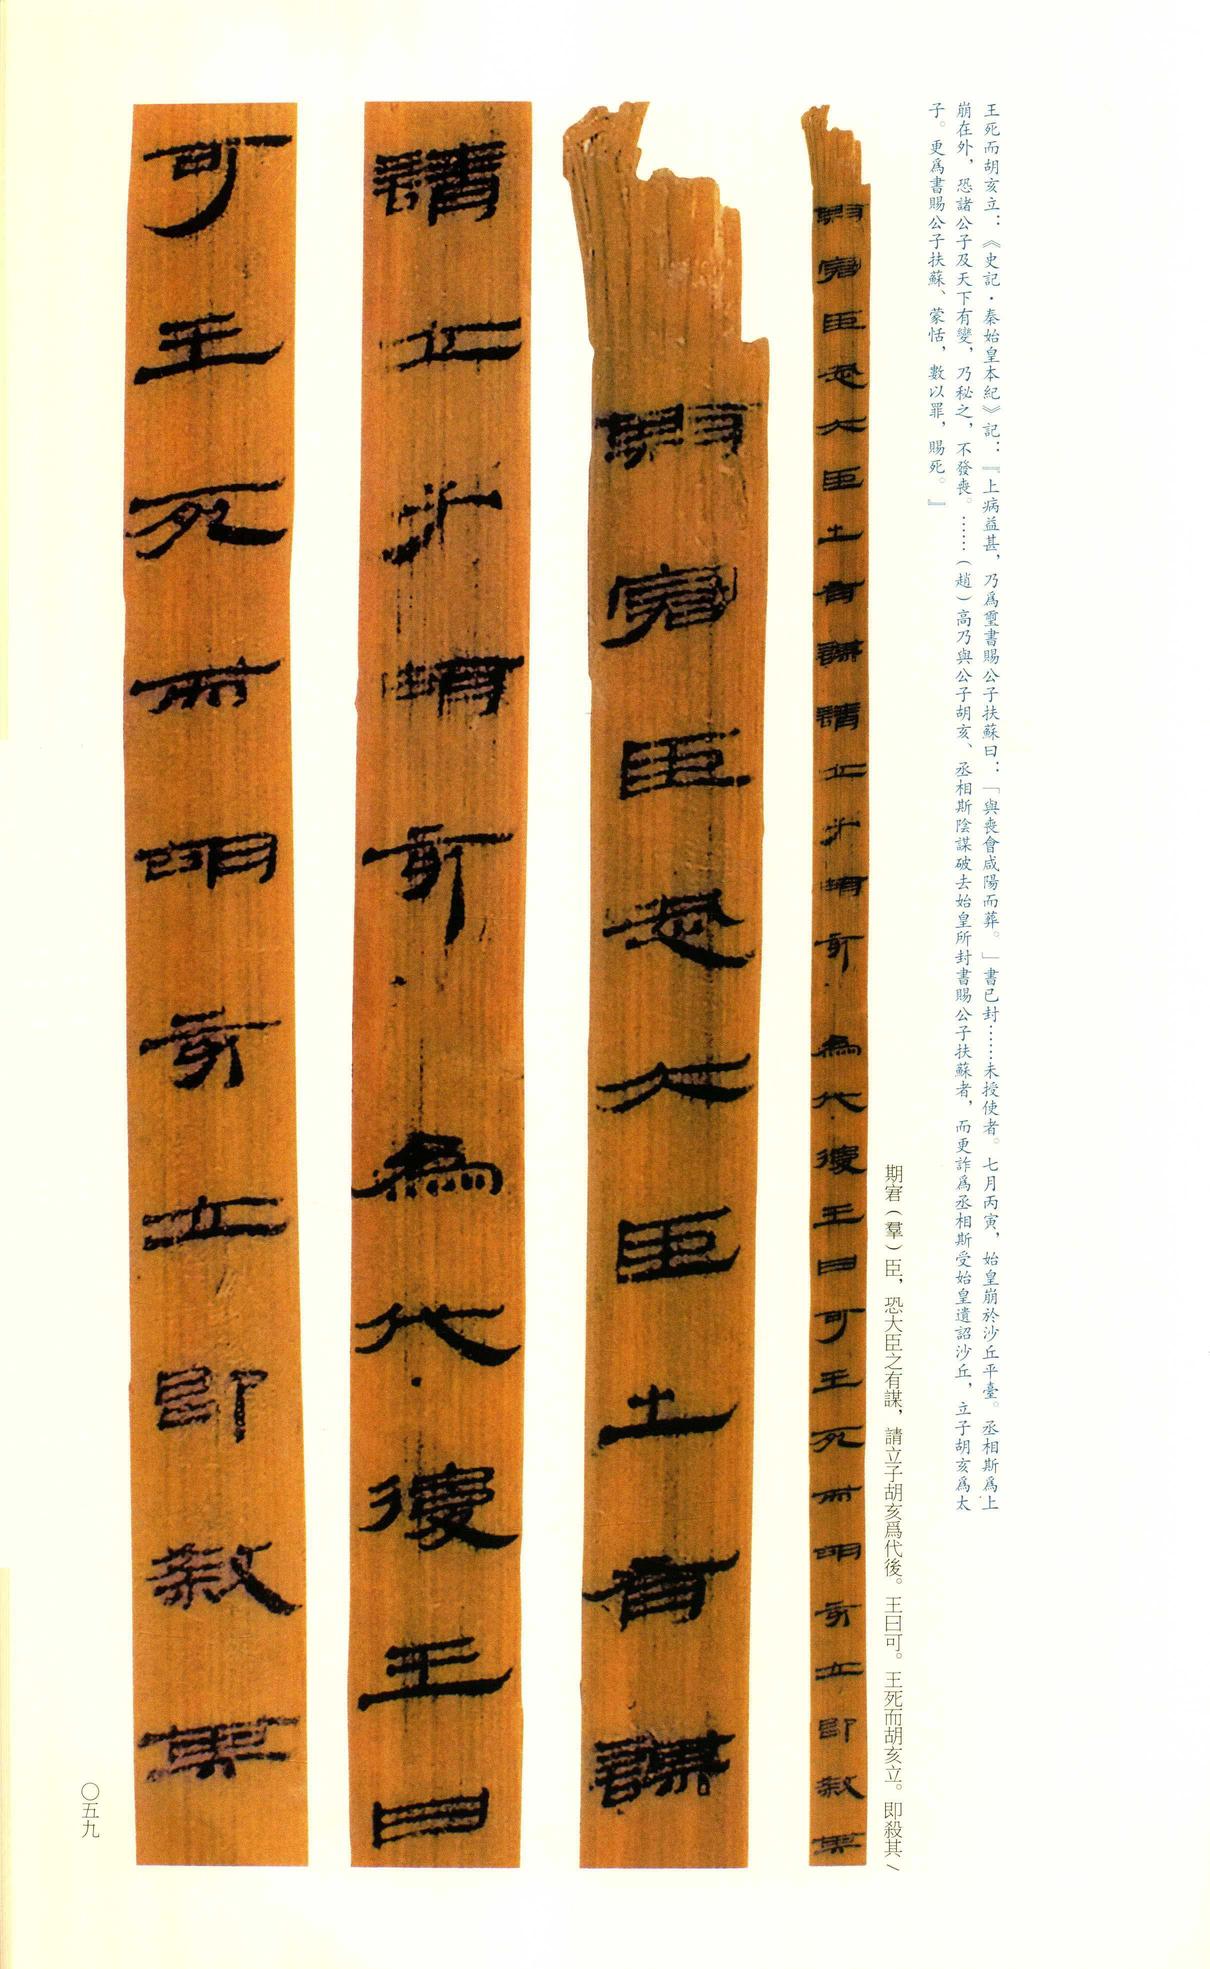 王死而胡亥立：《史記·秦始皇本紀》記：『上病益甚，乃爲璽書賜公子扶蘇曰：「與喪會咸陽而葬。」書已封……未授使者。七月丙寅，始皇崩於沙丘平臺。丞相斯爲上
崩在外，恐諸公子及天下有變，乃秘之，不發喪。……（趙）高乃與公子胡亥、丞相斯陰謀破去始皇所封書賜公子扶蘇者，而更詐爲丞相斯受始皇遺詔沙丘，立子胡亥爲太
子。更爲書賜公子扶蘇、蒙恬，數以罪，賜死。』
期宭（羣）臣，恐大臣之有謀，請立子胡亥爲代後。王曰可。王死而胡亥立。即殺其／
期宭臣恐大臣之有謀請立子胡亥爲代後王曰可王死而胡亥立即殺其
期宭臣恐大臣之有謀
請立子胡亥爲代後王曰
可王死而胡亥立即殺其
〇五九